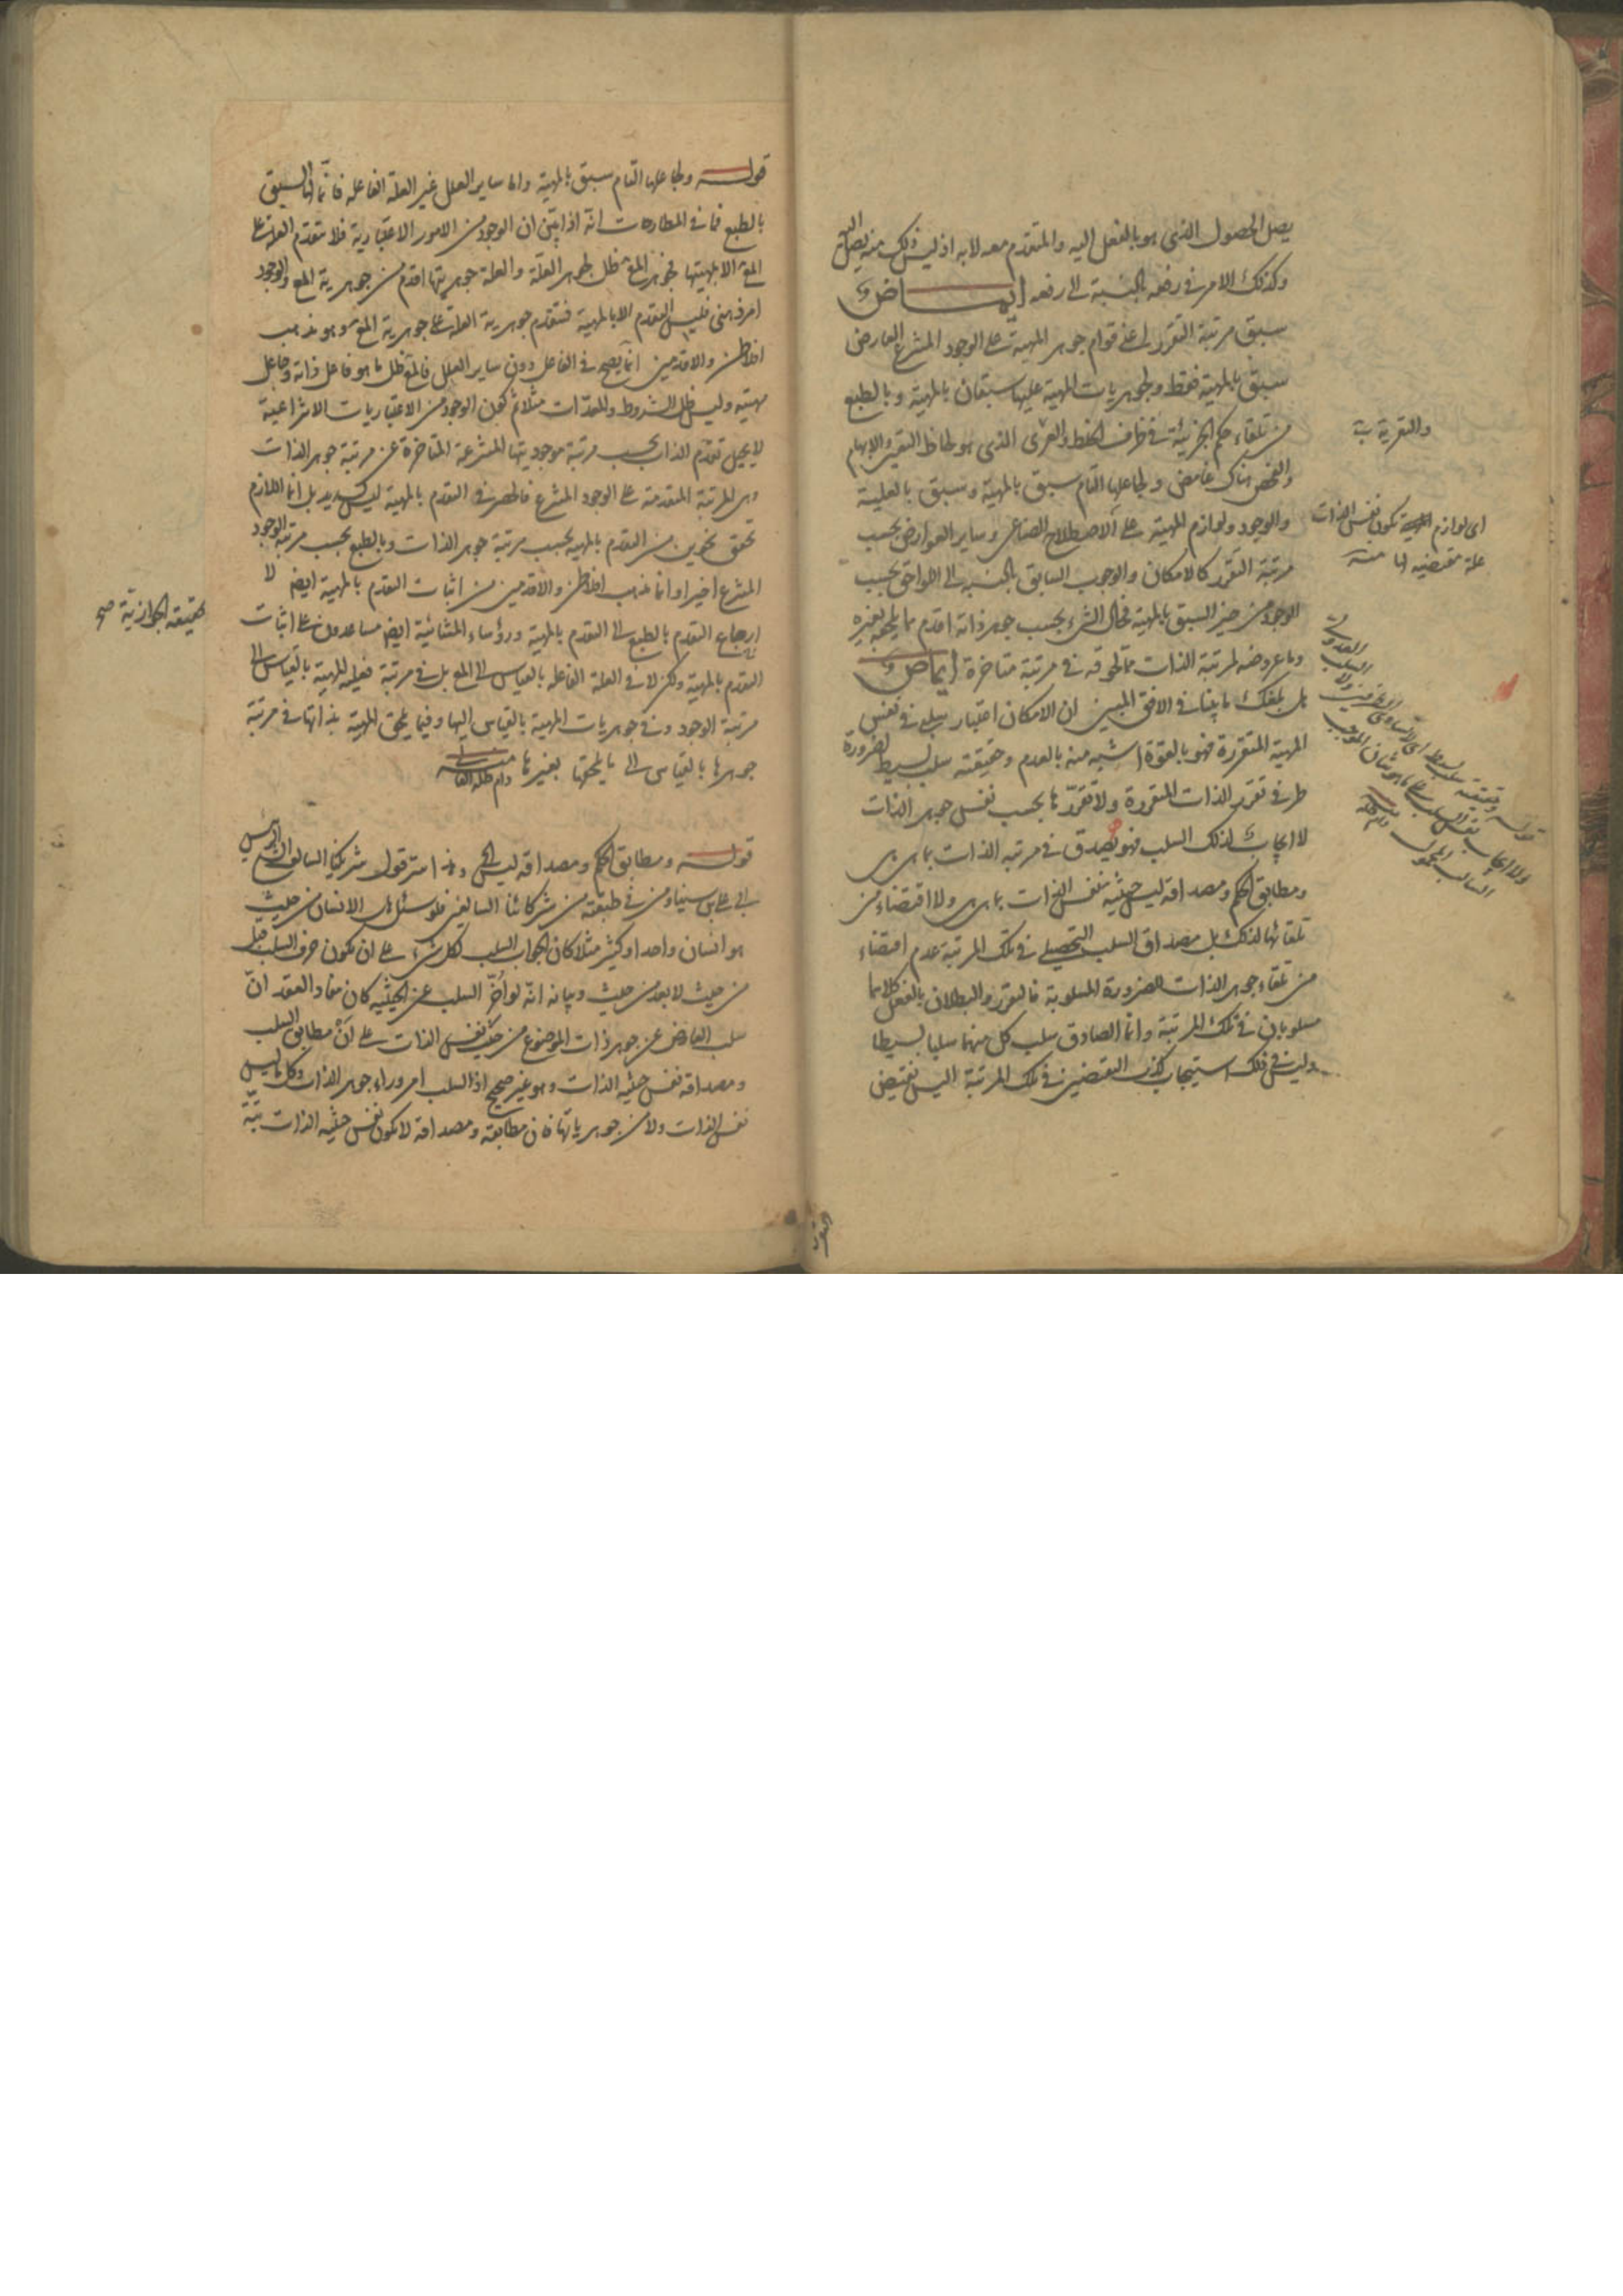 يصل الحصول الذى هو بالفعل اليه والمتقدم معه لابه اذ ليس ذلك منه يصل اليه
وكذلك الامر فى رفعه بالنسبة الى رفعه ايماض و
سبق مرتبة التقرر اعنى قوام جوهر المهية على الوجود المنتزع العارض
سبق بالمهية فقط ولجوهريات المهية عليها سبقان بالمهية وبالطبع
من تلقاء حكم الجزئية فى ظرف الخلط والتعرى الذى هو لحاظ التعين والابهام
والفحص هناك غامض ولجاعلها التام سبق بالمهية وسبق بالعلية
والوجود ولوازم المهية على الاصطلاح الصناعى وساير العوارض بحسب
مرتبة التقرر كالامكان والوجوب السابق بالنسبة الى اللواحق بحسب
الوجود من حيز السبق بالمهية فحال الشىء بحسب جوهر ذاته اقدم مما يلحقه بغيره
وما عروضه لمرتبة الذات مما لحوقه فى مرتبة متاخرة ايماض و
بل بلغك ما بينا فى الافق المبين ان الامكان اعتبار سلبى فى نفس
المهية المتقررة فهو بالقوة اشبه منه بالعدم وحقيقته سلب بسيط لضرورة
طرفى تقرر الذات المتقررة ولا تقررها بحسب نفس جوهر الذات
لا ايجاب لذلك السلب فهو يصدق فى مرتبة الذات بما هى هى
ومطابق الحكم ومصداقه ليس حيثية نفس الذات بما هى هى ولا اقتضاء من
تلقائها لذلك بل مصداق السلب التحصيلى فى تلك المرتبة عدم اقتضاء
من تلقاء جوهر الذات للضرورة المسلوبة فالتقرر والبطلان بالفعل كلاهما
مسلوبان فى تلك المرتبة وانما الصادق سلب كل منهما سلبا بسيطا
وليس فى ذلك استيجاب كذب النقيضين فى تلك المرتبة اليس نقيض
والتقريه ية
اى لوازم المهية تكون نفس الذات
علة مقتضيه لها منه
قوله وحقيقته سلب بسيط
قوله ولجاعلها التام سبق بالمهية واما ساير العلل غير العلة الفاعله فانما لها السبق
بالطبع فما فى المطارحات انه اذا تبين ان الوجود من الامور الاعتبارية فلا يتقدم العلة على
المع الا بمهيتها فجوهر المع ظل لجوهر العلة والعلة جوهريتها اقدم من جوهرية المع والوجود
امر ذهنى فليس التقدم الا بالمهية فتقدم جوهرية العلة على جوهرية المع وهو مذهب
افلاطن والاقدمين انما يصح فى الفاعل دون ساير العلل فالمع ظل ما هو فاعل ذاته وجاعل
مهيته وليس ظل الشروط والمعدات مثلا ثم كون الوجود من الاعتباريات الانتزاعية
لا يحيل تقدم الذات بحسب مرتبة موجوديتها المنتزعة المتاخرة عن مرتبة جوهر الذات
وهى المرتبة المتقدمة على الوجود المنتزع فالحصر فى التقدم بالمهية ليس بسديد بل انما اللازم
تحقق نحوين من التقدم بالمهية بحسب مرتبة جوهر الذات وبالطبع بحسب مرتبة الوجود
المنتزع اخيرا وانما مذهب افلاطن والاقدمين من اثبات التقدم بالمهية ايض لا
ارجاع التقدم بالطبع الى التقدم بالمهية ورؤساء المشائية ايض مساعدون على اثبات
التقدم بالمهية ولكن لا فى العلة الفاعله بالقياس الى المع بل فى مرتبة فعلية المهية بالقياس الى
مرتبة الوجود وفى جوهريات المهية بالقياس اليها وفيما يلحق المهية بذاتها فى مرتبة
جوهرها بالقياس الى ما يلحقها بغيرها منه
دام ظله العالى
لحقيقته الجوازية صح
قوله ومطابق الحكم ومصداقه ليس الخ ومن استر قول شريكنا السالف الرئيس
ابى على بن سينا ومن فى طبقته من شركائنا السالفين فلو سئل هل الانسان من حيث
هو انسان واحد او كثير مثلا كان الجواب السلب لكل شىء على ان يكون حرف السلب قبل
من حيث لا بعد من حيث وبيانه انه لو اخر السلب عن الحيثية كان مفاد العقد ان
سلب العارض عن جوهر ذات الموضوع من حيث نفس الذات على ان مطابق السلب
ومصداقه نفس حيثية الذات وهو غير صحيح اذ السلب امر وراء جوهر الذات وكل ما ليس
نفس الذات ولا من جوهرياتها فان مطابقه ومصداقه لا يكون نفس حيثية الذات بتة